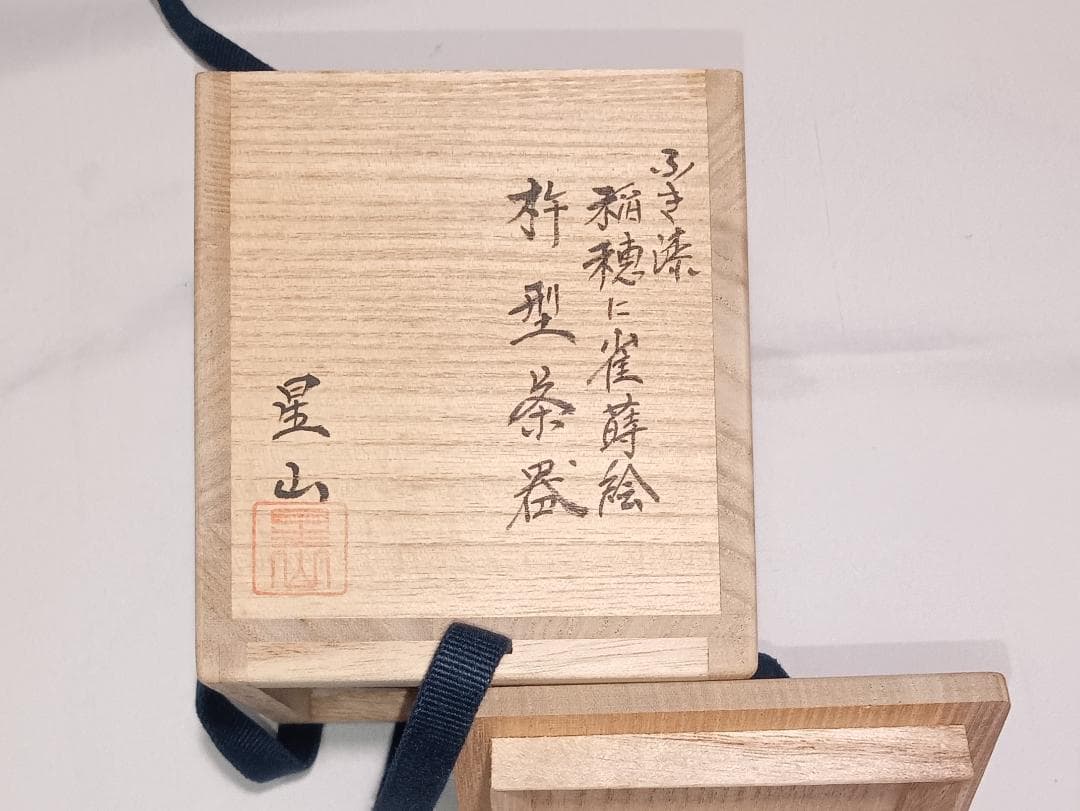 ふき漆
稲穂に雀蒔絵
杵型茶器
星山